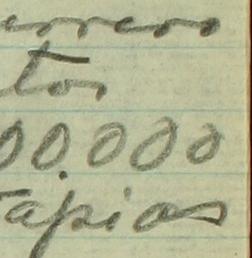 errero
tos
00.000
Tapias